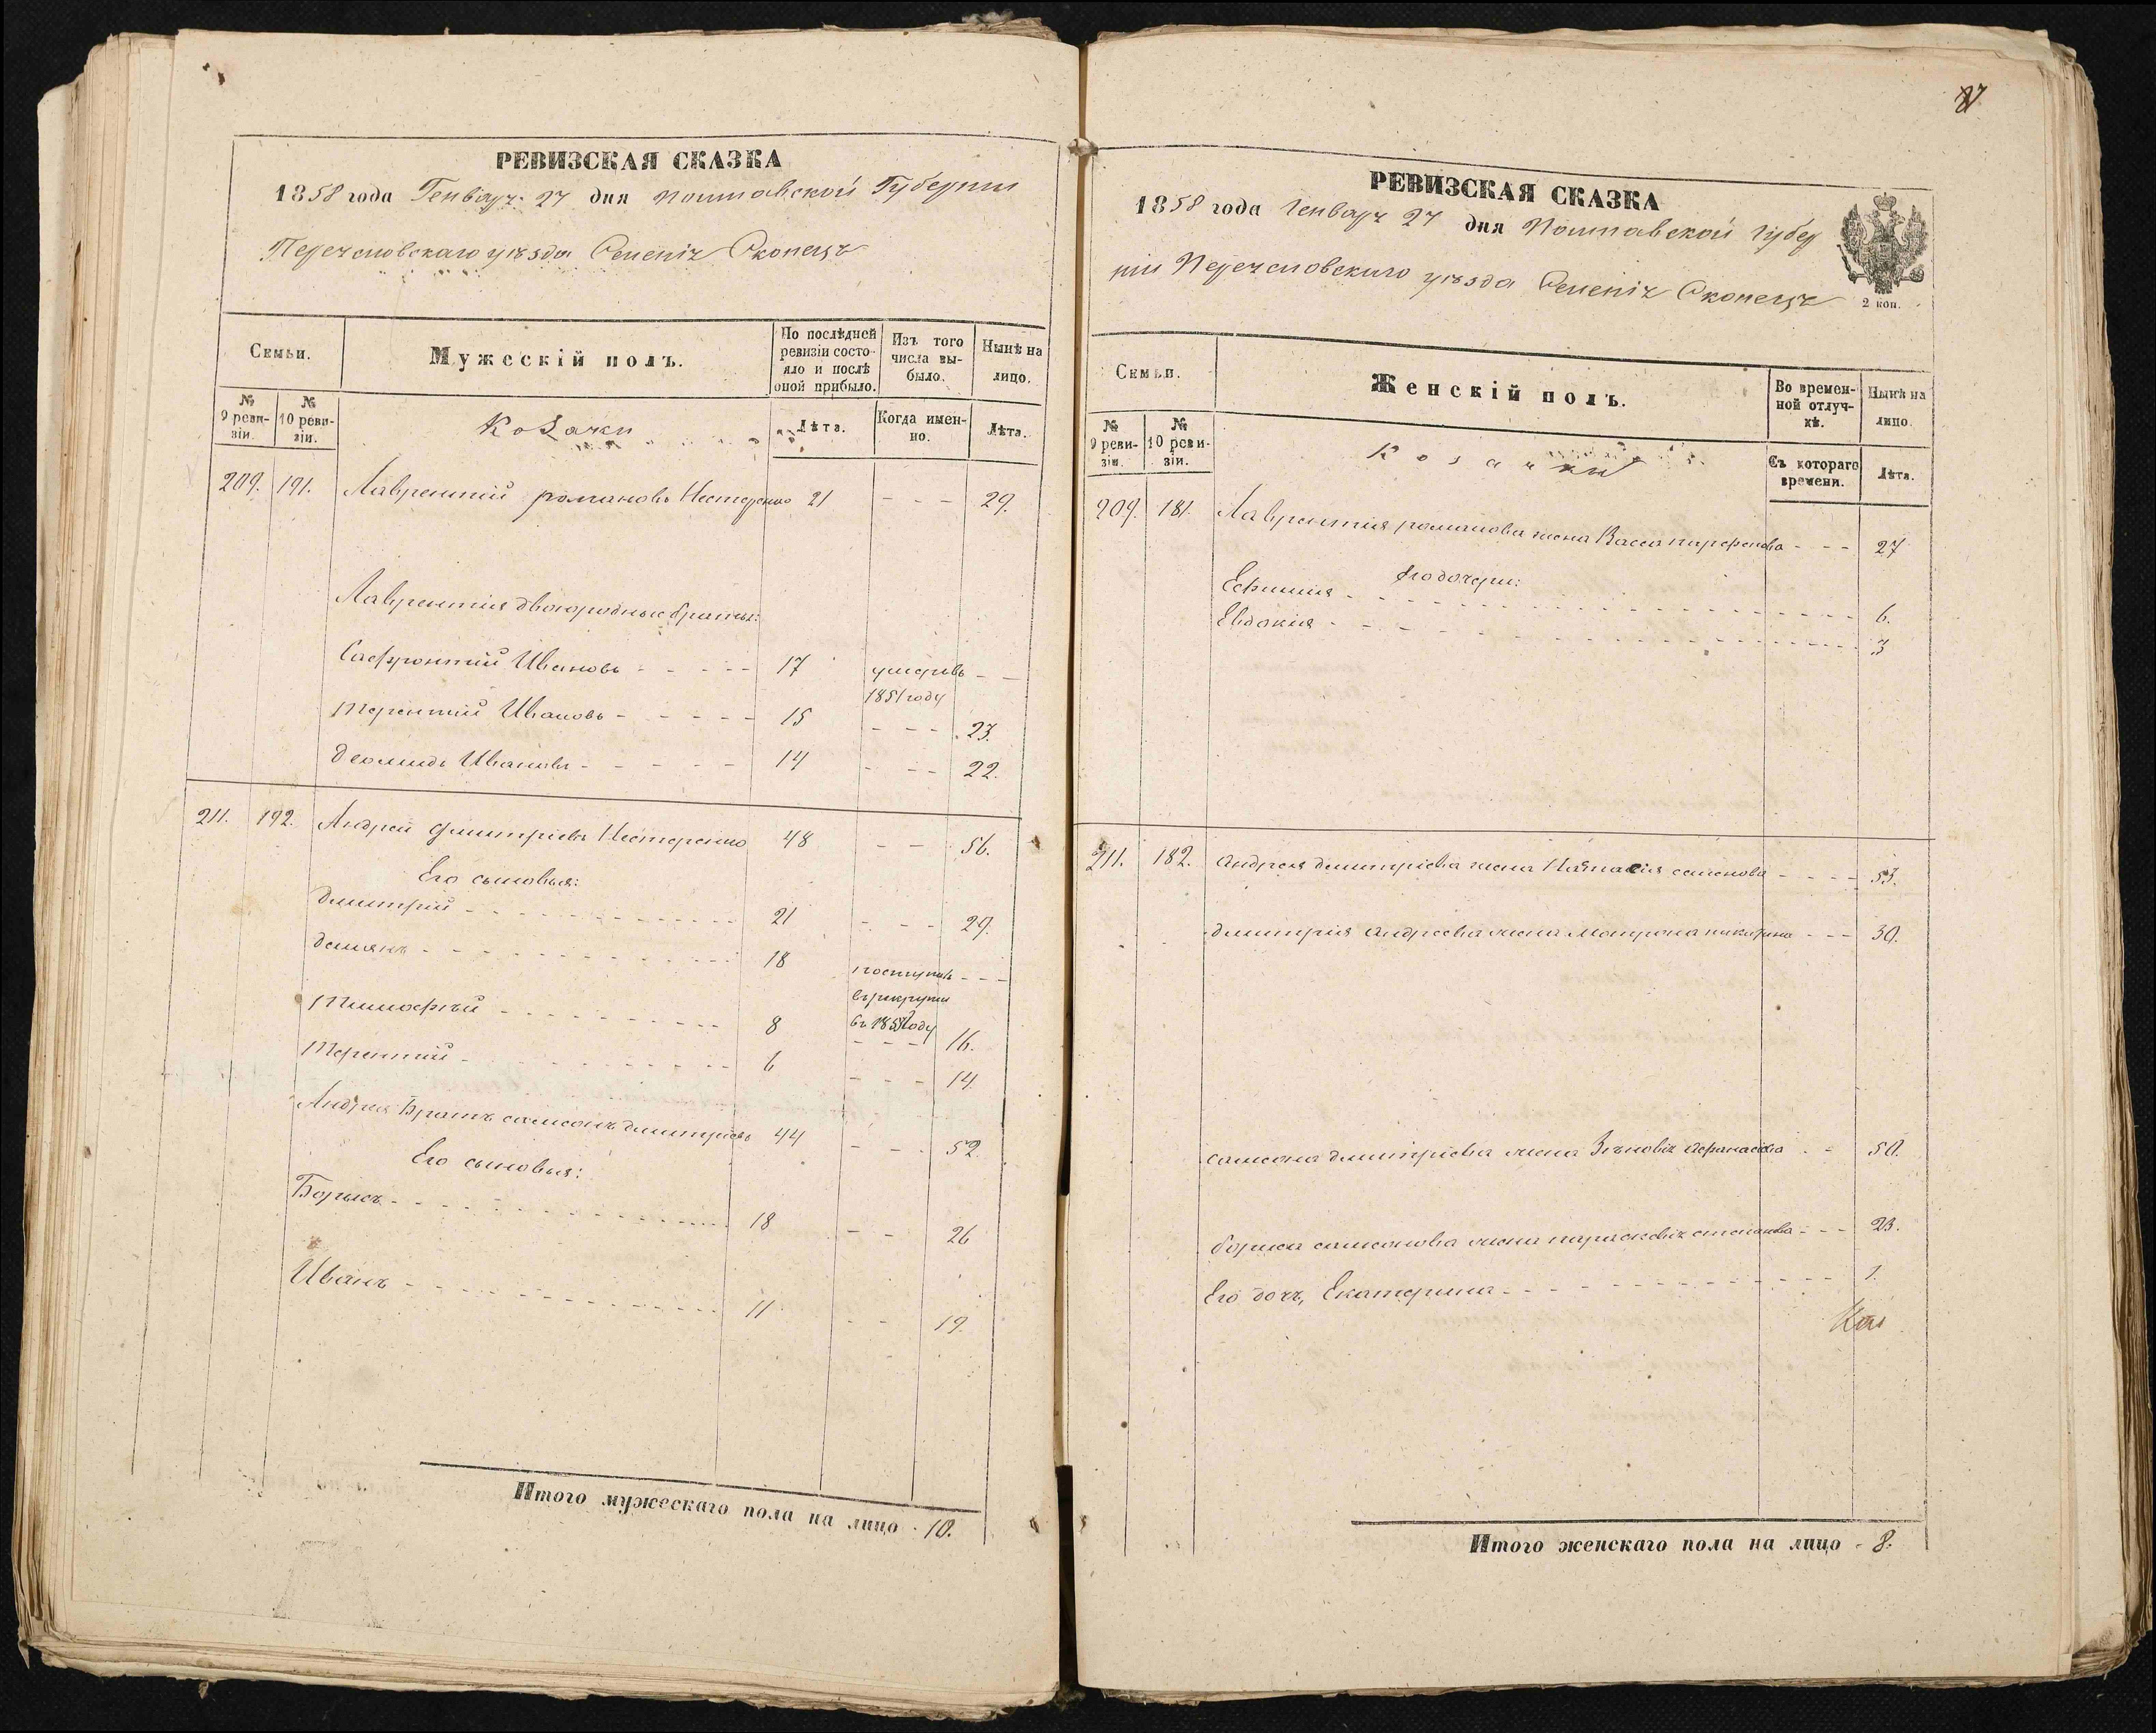 РЕВИЗСКАЯ СКАЗКА
1858 года Генваря 27 дня Полтавской Губернии
Переяславскаго уѣзда Селенія Скопецъ
Семьи.
Мужескій полъ.
По послѣдней ревизіи состояло и послѣ оной прибыло.
Изъ того числа выбыло.
Нынѣ на лицо.
№ 9 ревизіи.
№ 10 ревизіи.
Козаки
Лѣта.
Когда именно.
Лѣта.
209. 191. Лаврентій романовъ Нестеренко 21 - - - 29.
Лаврентия двоюродные братья:
Сафронтий Ивановъ - - - - - 17 умеръ въ - -
1851 году
Терентий Ивановъ - - - - - 15 - - - 23.
Ивановъ - - - - - 14 - - - 22.
211. 192. Андрей Дмитріевъ Нестеренко 48 - - 56.
Его сыновья:
Дмитрій - - - 21 - - - 29.
Демянъ - - - 18 поступилъ - - -
въ рекруты
въ году
Тимофѣй - - - 8 - - - 16.
Терентій - - - 6 - - - 14.
Андрея Братъ самсонъ дмитріевъ 44 - - - 52.
Его сыновья:
Борисъ - - - 18 - - 26
Иванъ - - - 11 - - 19.
Итого мужескаго пола на лицо 10.
РЕВИЗСКАЯ СКАЗКА
1858 года Генваря 27 дня Полтавской губер
ніи Переяславскаго уѣзда Селенія Скопецъ
2 коп.
Семьи.
Женскій полъ.
Во временной отлучкѣ.
Нынѣ на лицо.
№ 9 ревизіи.
№ 10 ревизіи.
Козачки
Съ котораго времени.
Лѣта.
209. 181. Лаврентия романова жена Васса парфенова - - - 27
Его дочери:
Ефимия - - - 6.
Евдокия - - - 3
211. 182. Андрея дмитріева жена Настасия семенова - - - - 53.
дмитрия андреева жена Мотрона - - - 30.
самсона дмитріева жена Зѣновія Афанасіева - - 50.
бориса самсонова жена параскевія степанова - - - 23.
Его дочь, Екатерина - - - 1.
Итого женскаго пола на лицо 8.